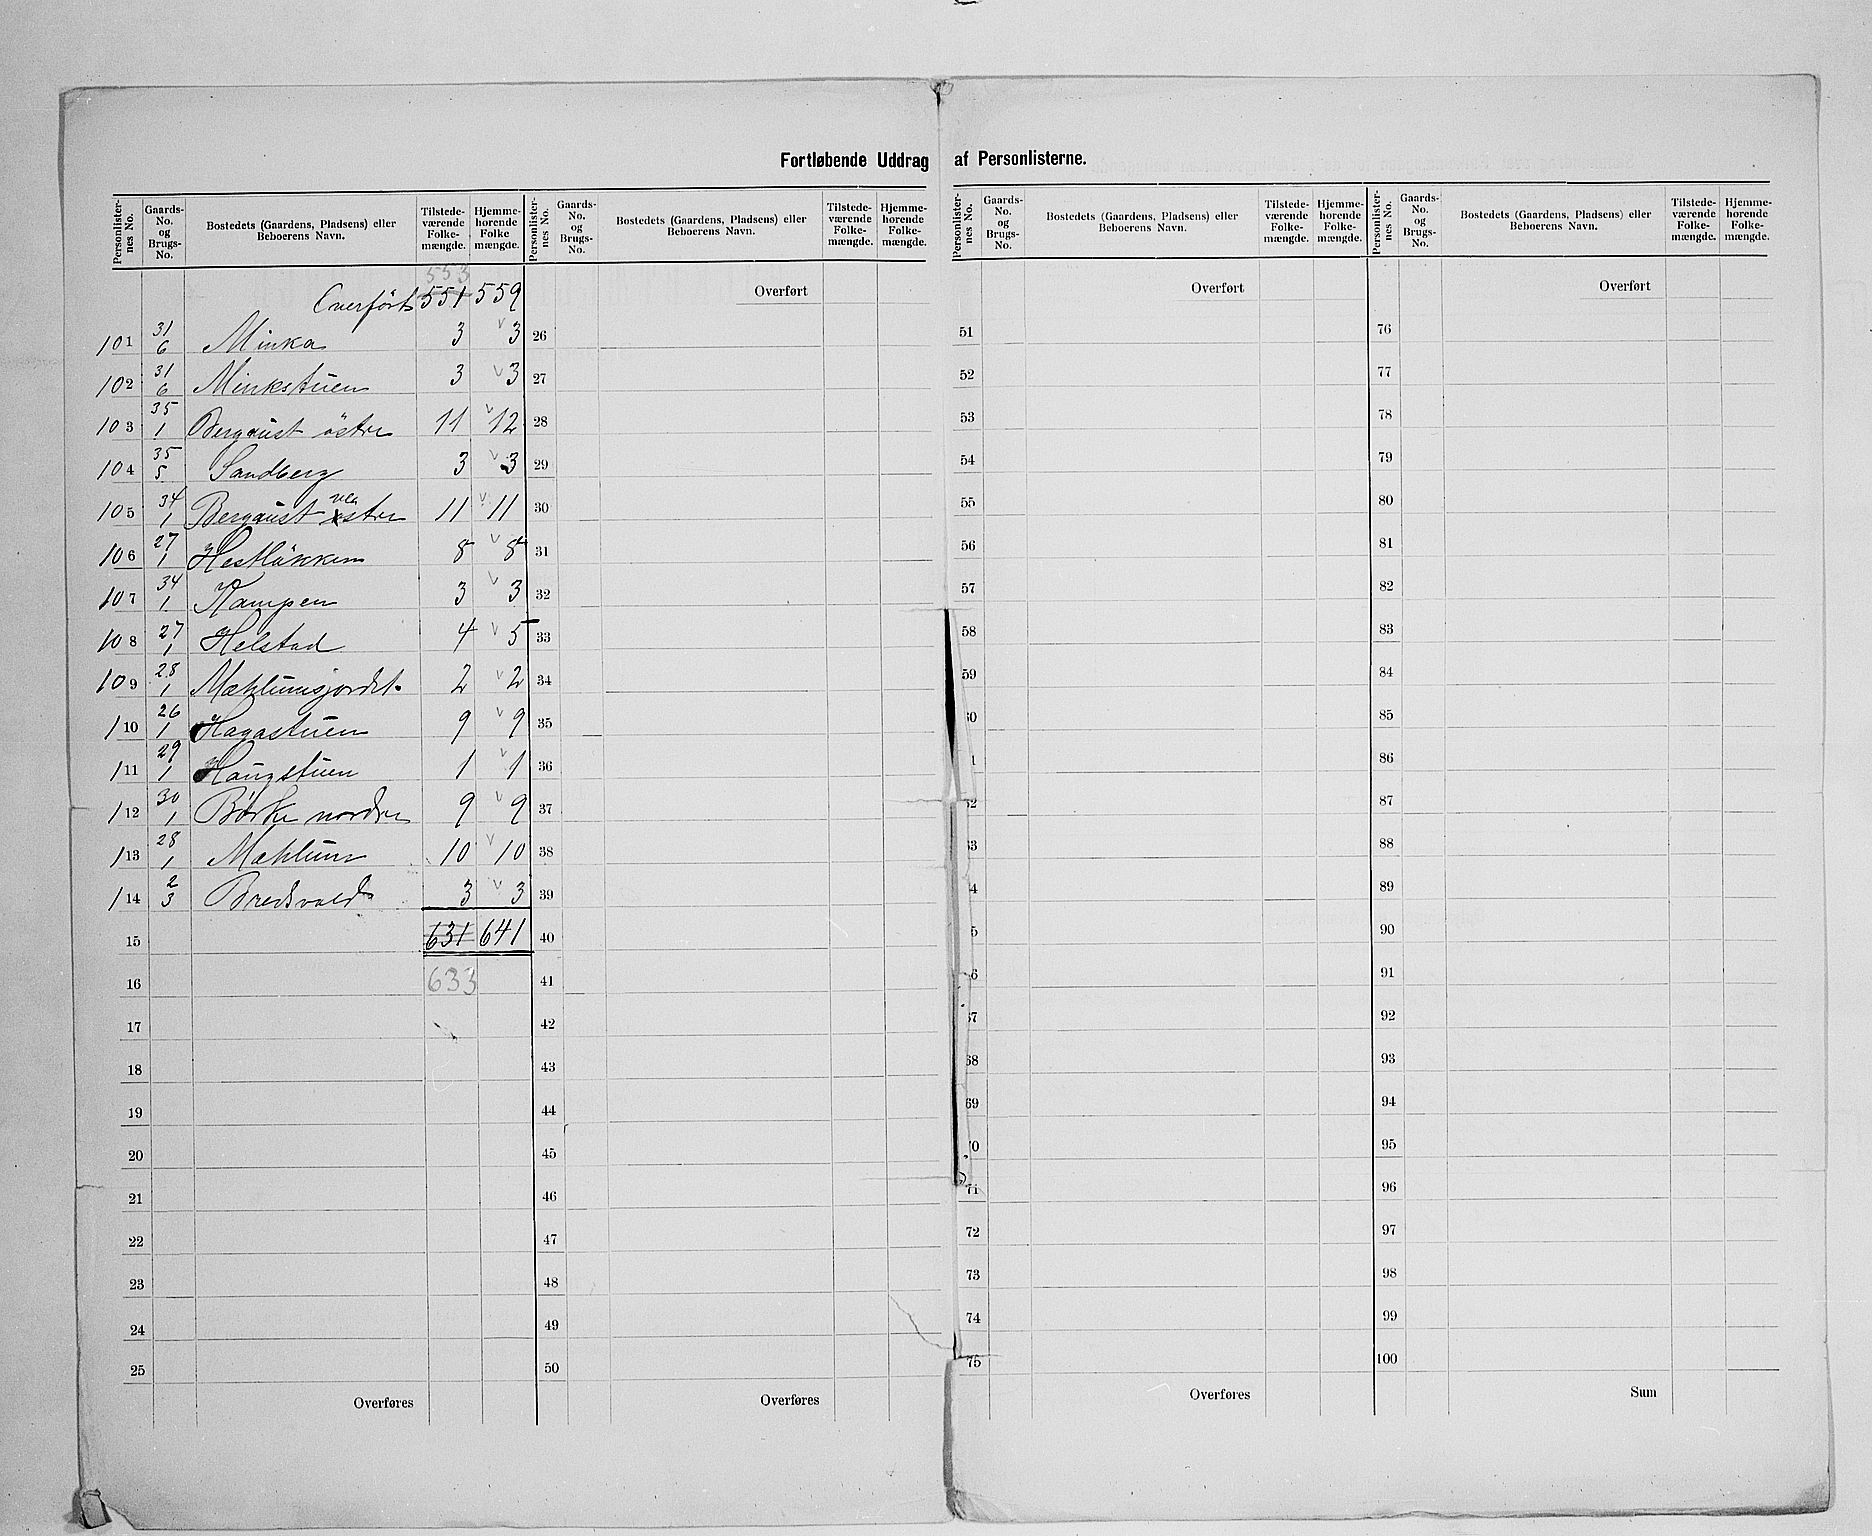 Fortløbende Uddrag af Personlisterne.
Personlister-nes No. | Gaards-No. og Brugs-No. | Bostedets (Gaardens, Pladsens) eller Beboerens Navn. | Tilstede-værende Folke-mængde. | Hjemme-hørende Folke mængde.
553
Overført 551 559
101 31/6 Minka 3 v 3
102 31/6 Minkstuen 3 v 3
103 35/1 Bergaust östre 11 v 12
104 35/5 Sandberg 3 v 3
105 34/1 Bergaust vestre 11 v 11
106 27/1 Hestløkken 8 v 8
107 34/1 Kampen 3 v 3
108 27/1 Helstad 4 v 5
109 28/1 Mæhlumsjordet. 2 v 2
110 26/1 Hagastuen 9 v 9
111 29/1 Haugstuen 1 v 1
112 30/1 Börke nordre 9 v 9
113 28/1 Mæhlum 10 v 10
114 2/3 Bredsvold 3 v 3
15 631 641
16 633
17
18
19
20
21
22
23
24
25
Overføres
Personlister-nes No. | Gaards-No. og Brugs-No. | Bostedets (Gaardens, Pladsens) eller Beboerens Navn. | Tilstede-værende Folke-mængde. | Hjemme-hørende Folke-mængde.
Overført
26
27
28
29
30
31
32
33
34
35
36
37
38
39
40
41
42
43
44
45
46
47
48
49
50
Overføres
Personlister-nes No. | Gaards-No. og Brugs-No. | Bostedets (Gaardens, Pladsens) eller Beboerens Navn. | Tilstede-værende Folke-mængde. | Hjemme-hørende Folke-mængde.
Overført
51
52
53
54
55
56
57
58
59
60
1
62
63
4
5
6
67
68
69
70
71
72
73
74
75
Overføres
Personlister-nes No. | Gaards-No. og Brugs-No. | Bostedets (Gaardens, Pladsens) eller Beboerens Navn. | Tilstede-værende Folke-mængde. | Hjemme-hørende Folke-mængde.
Overført
76
77
78
79
80
81
82
83
84
85
86
87
88
89
90
91
92
93
94
95
96
97
98
99
100
Sum